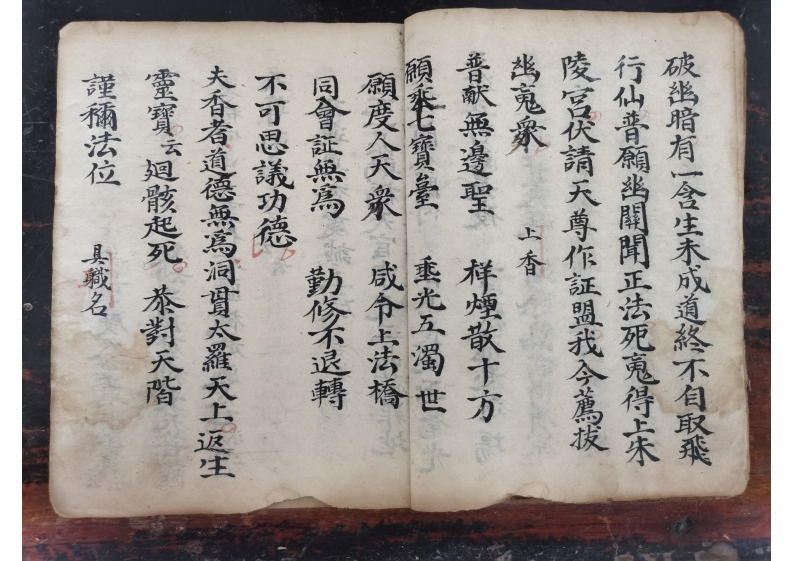 破幽暗有一含生未成道終不自取飛
行仙普願幽關聞正法死䰟得上朱
陵宮伏請天尊作証盟我今薦拔
幽䰟衆 上香
普献無邊聖 样煙散十方
願乘七寶臺 垂光五濁世
願度人天衆 咸令上法橋
同會証無爲 勤修不退轉
不可思議功德
夫香者道德無爲洞貫太羅天上返生
靈寶云廻骸起死 恭對天階
謹稱法位 具職名